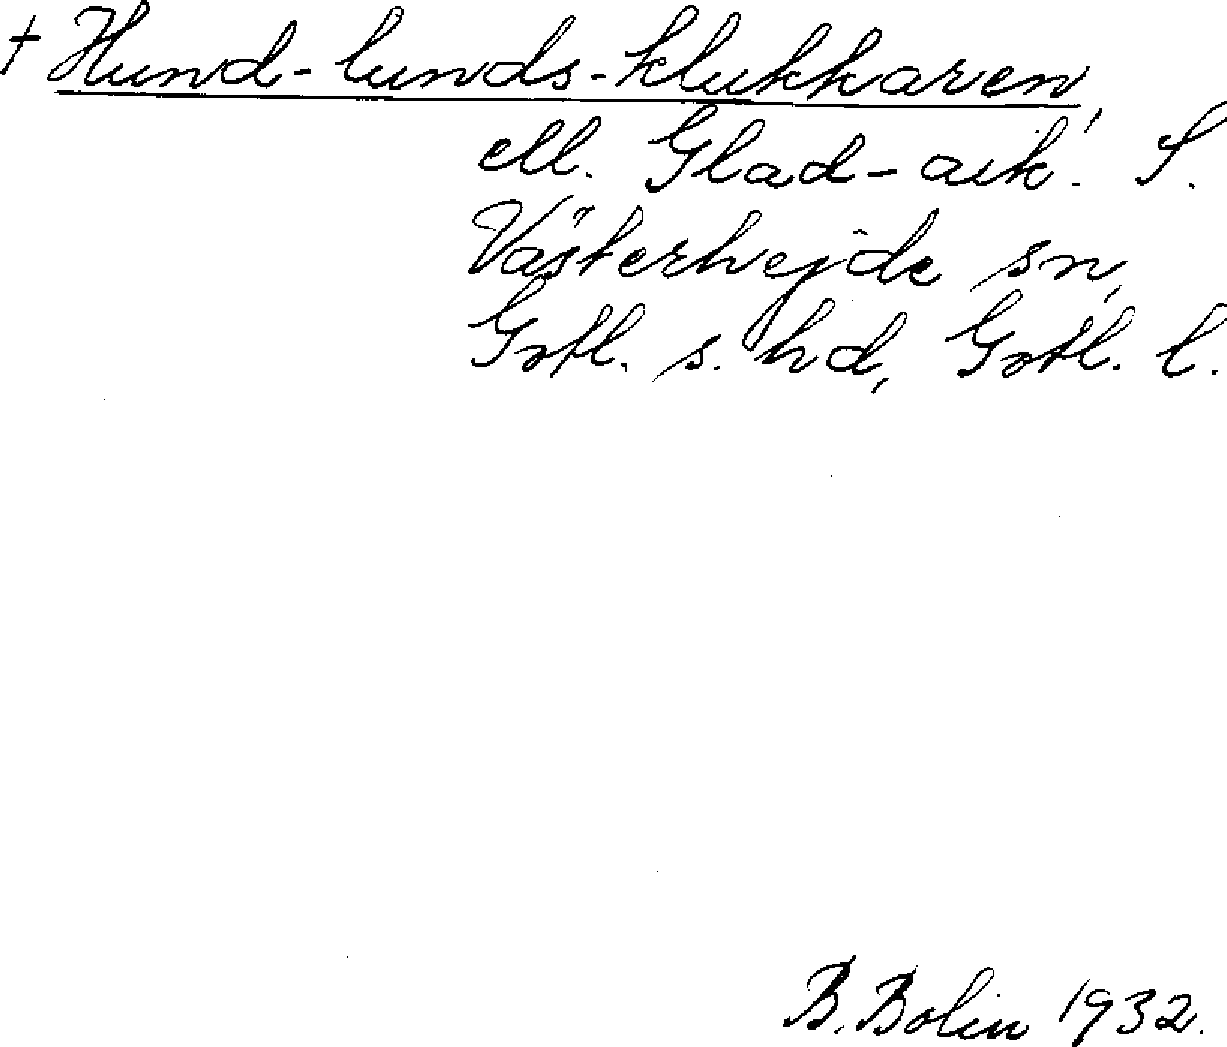 † Hund-lunds-klukkaren,
ell. Glad-aik. S.
Västerhejde sn,
Gotl. s. hd, Gotl. l.
B. Bolin 1932.